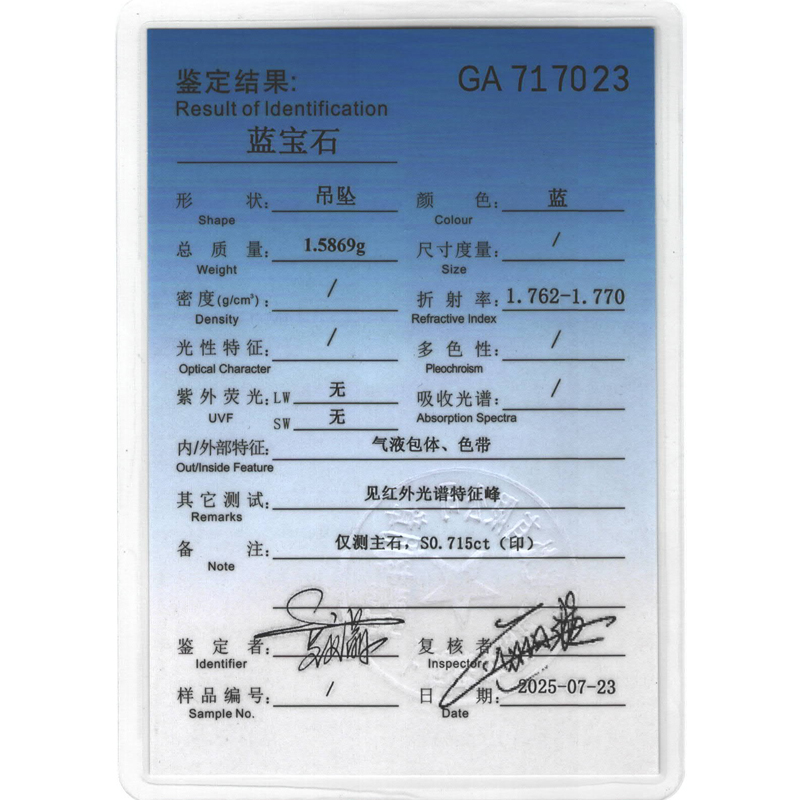 鉴定结果: GA 717023
Result of Identification
蓝宝石
形 状: 吊坠 颜 色: 蓝
Shape Colour
总 质 量: 1.5869g 尺寸度量: /
Weight Size
密度(g/cm³): / 折 射 率: 1.762-1.770
Density Refractive Index
光性特征: / 多 色 性: /
Optical Character Pleochroism
紫外荧光: LW 无 吸收光谱: /
UVF SW 无 Absorption Spectra
内/外部特征: 气液包体、色带
Out/Inside Feature
其它测试: 见红外光谱特征峰
Remarks
备 注: 仅测主石, S0.715ct (印)
Note
鉴 定 者: 复 核 者
Identifier Inspector
样品编号: / 日 期: 2025-07-23
Sample No. Date